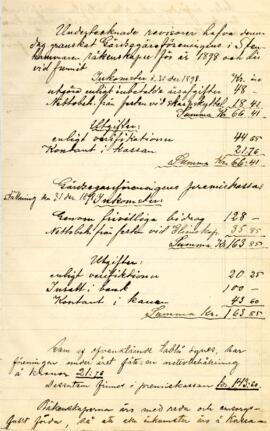 Undertecknade revisorer hafva denna
dag granskat Gärdsgårdsföreningens i Sten-
hammaren räkenskaper för år 1898 och där
vid funnit
Inkomster d. 31 dec 1898. Kr. öre
utgörs enligt inbetalda årsafgifter 48 -
Nettobeh. från festen vid 18.41
Summa Kr. 66.41
Utgifter:
enligt verifikationer 44 65
Kontant i kassan 21.76
Summa Kr. 66.41
Gärdsgårdsföreningens premiekassas
ställning den 31 dec 1898 Inkomster:
Genom frivilliga bidrag 128 -
Nettobeh. från festen vid 35.85
Summa Kr 163.85
Utgifter:
enligt verifiktioner 20 25
Insatt i bank 100 -
Kontant i kassan 43.60
Summa Kr. 163.85
Som af ofvanstående tablå synes, har
föreningen under året fått en nettobehållning
å kronor 21.76
Dessutom finnes i premiekassan kr. 143.60
Räkenskaperna äro med reda och
förda, då att alla inkomster äro i kassa-